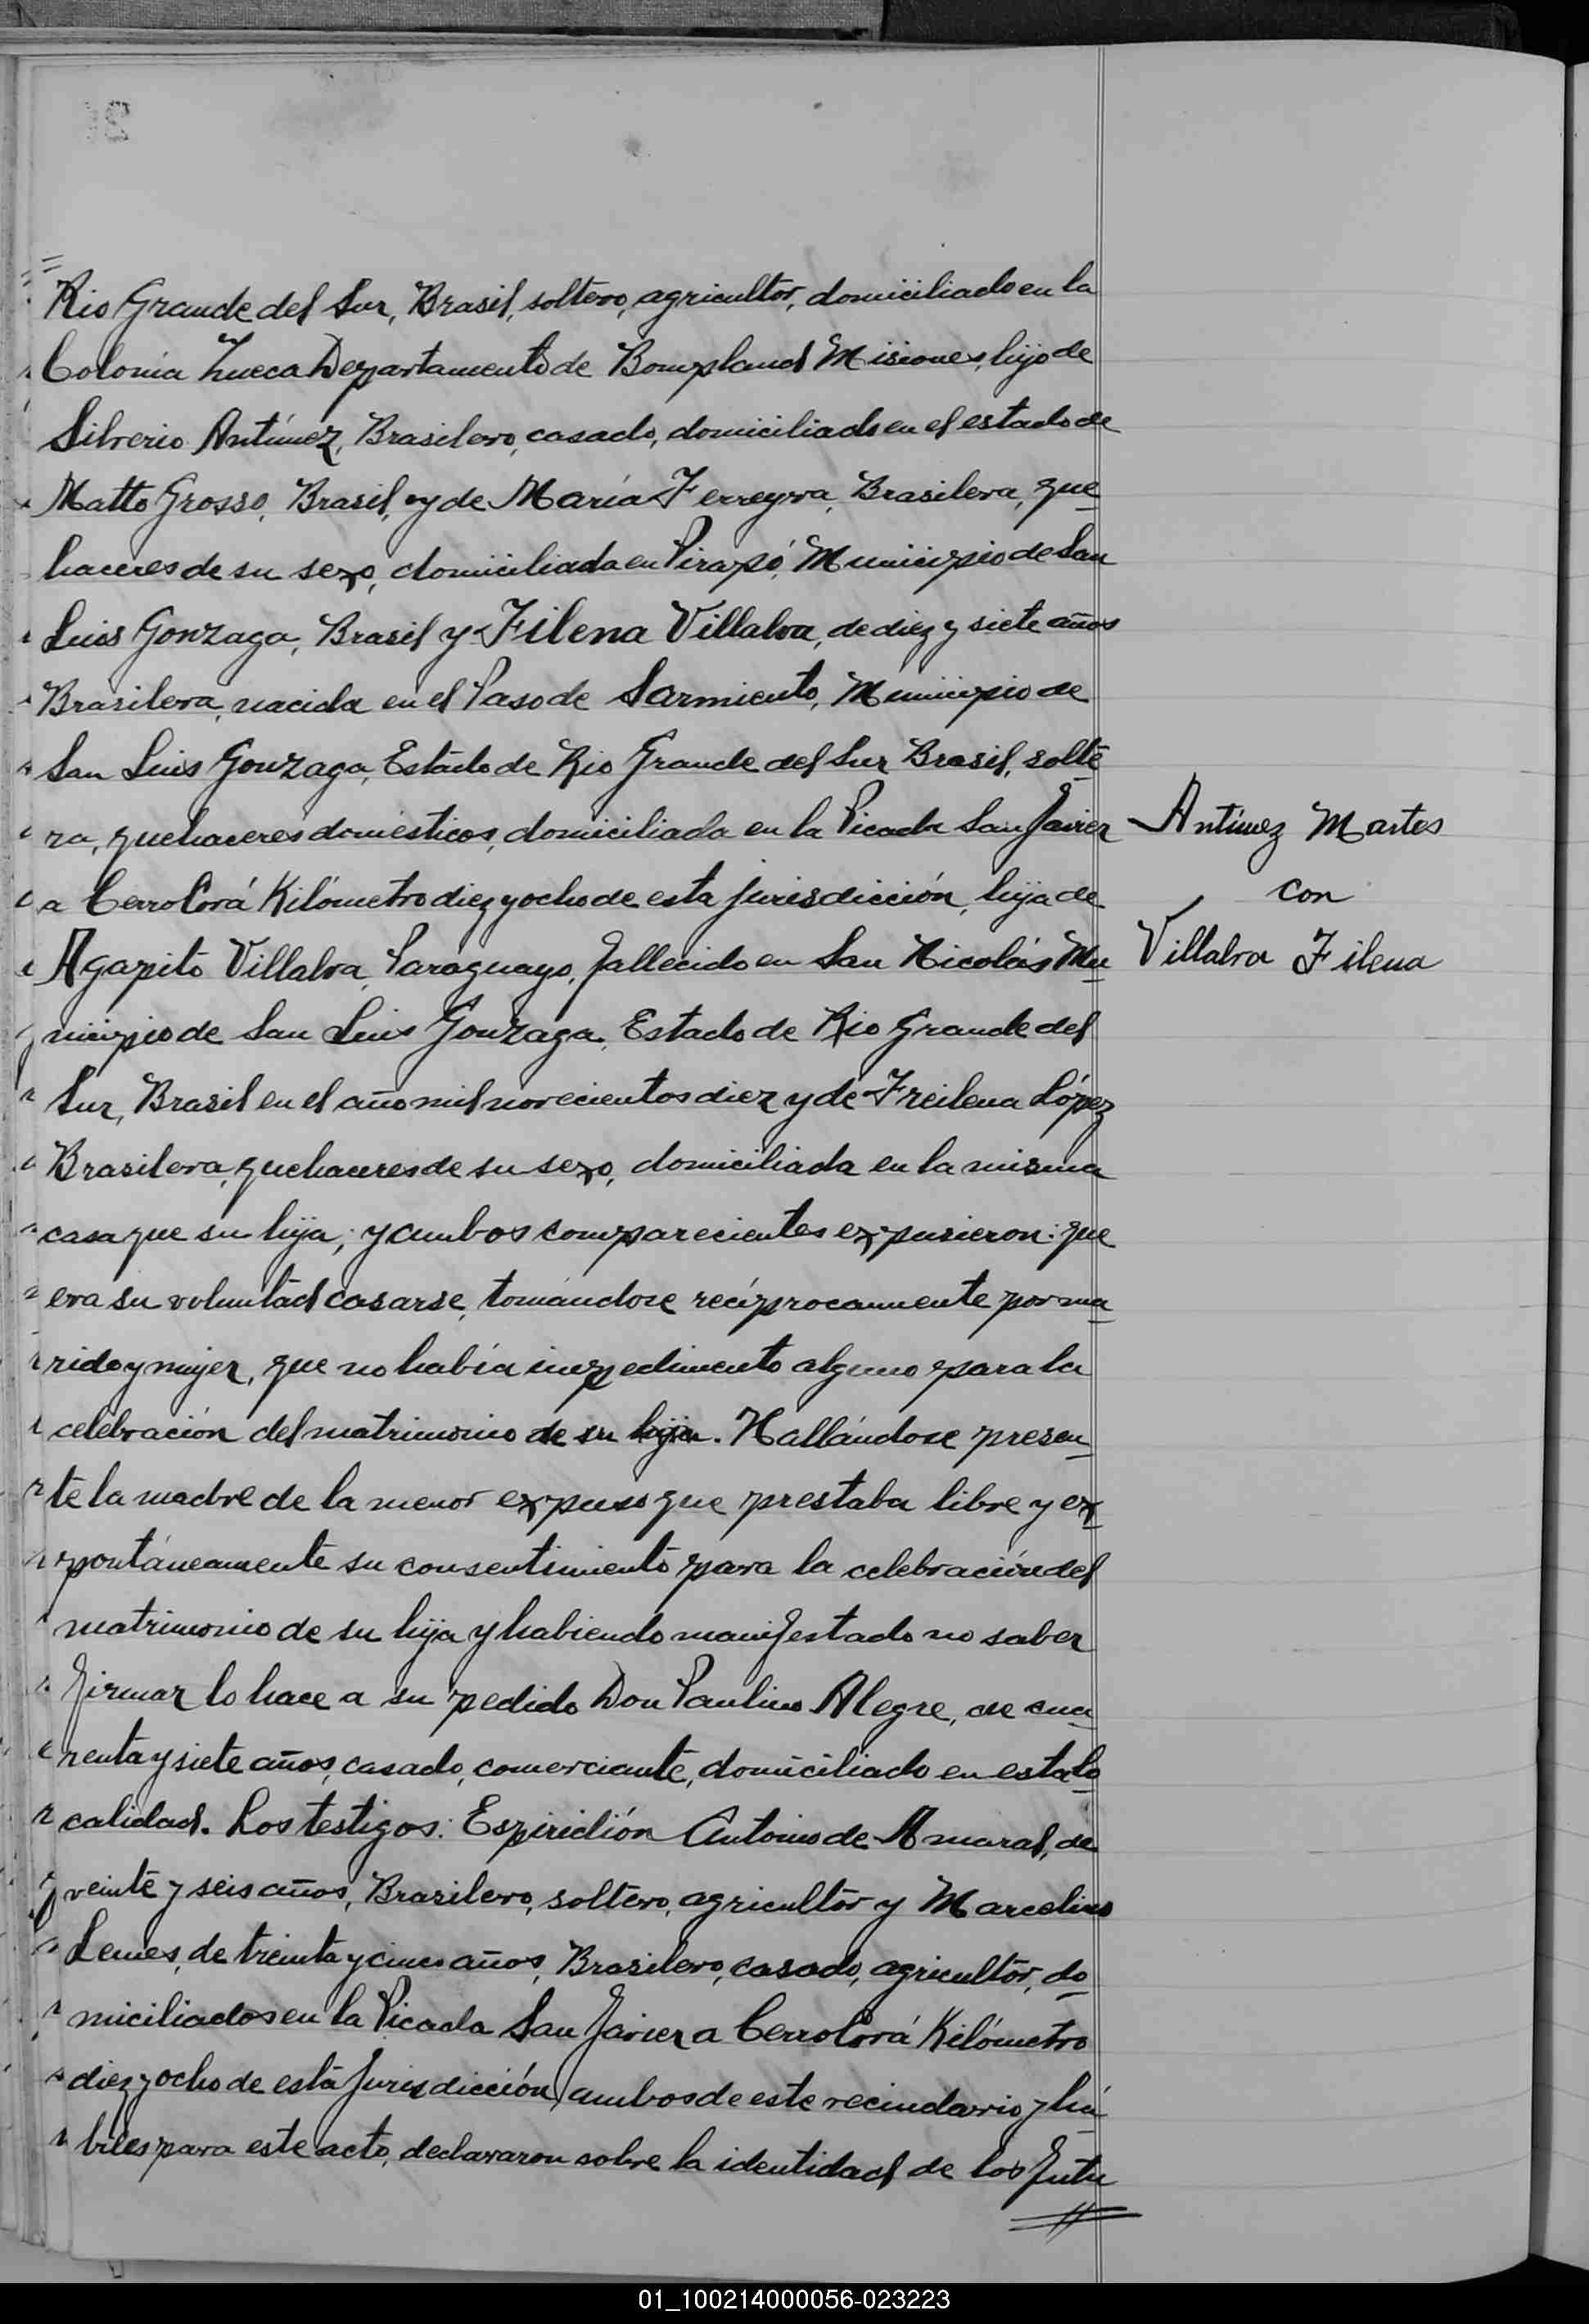 Rio Grande del Sur, Brasil, soltero, agricultor, domiciliado en la
Colonia Zueca Departamento de Bompland Misiones, hijo de
Silverio Antúnez, Brasilero, casado, domiciliado en el estado de
Matto Grosso, Brasil, y de María Ferreyra, Brasilera, que
haceres de su sexo, domiciliada en Pirapó, Municipio de San
Luis Gonzaga, Brasil y Filena Villalva, de diez y siete años
Brasilera, nacida en el Paso de Sarmiento, Municipio de
San Luis Gonzaga, Estado de Rio Grande del Sur Brasil, solte
ra, quehaceres domésticos, domiciliada en la Picada San Javier
a Cerro Corá Kilómetro diez y ocho de esta jurisdicción, hija de
Agapito Villalva, Paraguayo, fallecido en San Nicolás Mu
nicipio de San Luis Gonzaga, Estado de Rio Grande del
Sur, Brasil en el año mil novecientos diez y de Freilena López
Brasilera, quehaceres de su sexo, domiciliada en la misma
casa que su hija; y ambos comparecientes expusieron: que
era su voluntad casarse, tomándose recíprocamente por ma
rido y mujer, que no había impedimento alguno para la
celebración del matrimonio de su hija. Hallándose presen
te la madre de la menor expuso que prestaba libre y ex
pontáneamente su consentimiento para la celebración del
matrimonio de su hija y habiendo manifestado no saber
firmar lo hace a su pedido Don Paulino Alegre, de cua
renta y siete años, casado, comerciante, domiciliado en esta lo
calidad. Los testigos: Espiridión Antonio de Amaral, de
veinte y seis años, Brasilero, soltero, agricultor y Marcelino
Lemes, de treinta y cinco años, Brasilero, casado, agricultor, do
miciliados en la Picada San Javier a Cerro Corá Kilómetro
diez y ocho de esta Jurisdicción, ambos de este vecindario y há
biles para este acto, declararon sobre la identidad de los futu
Antúnez Martes
con
Villalva Filena
01_100214000056-023223